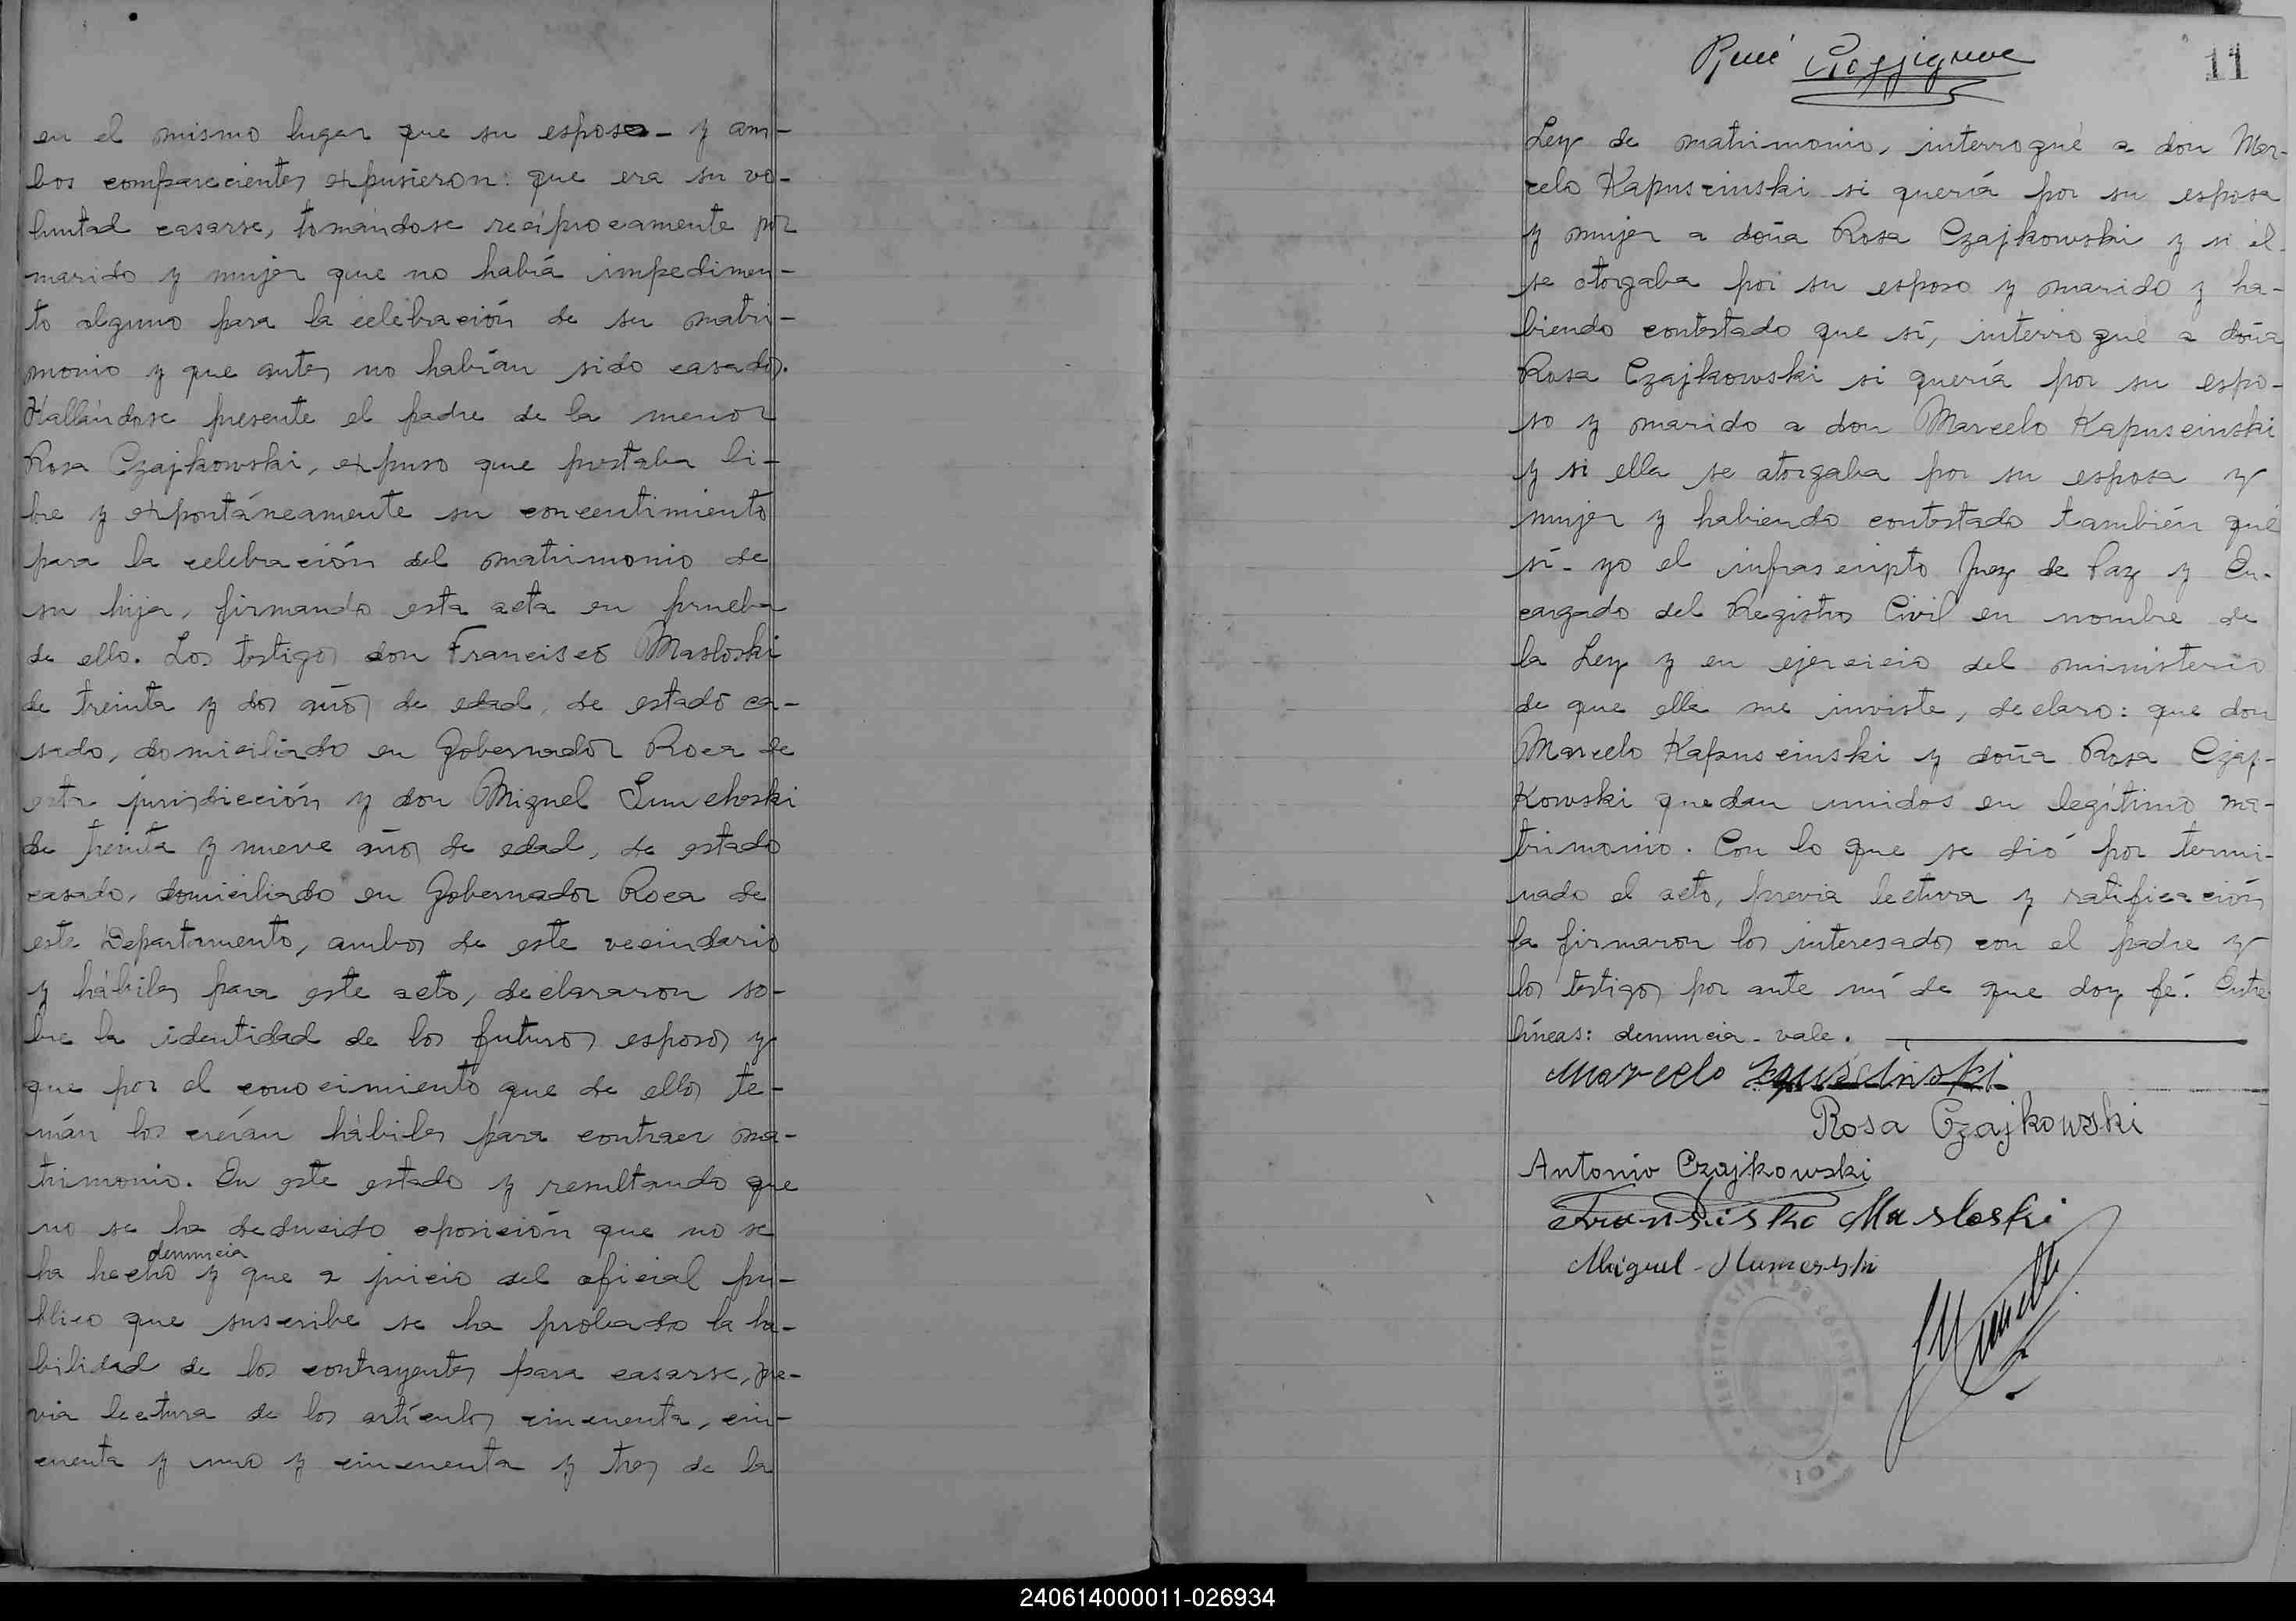 en el mismo lugar que su esposo - y am-
bos comparecientes expusieron: que era su vo-
luntad casarse, tomándose recíprocamente por
marido y mujer que no había impedimen-
to alguno para la celebración de su matri-
monio y que antes no habían sido casados.
Hallándose presente el padre de la menor
Rosa Czajkowski, expuso que prestaba li-
bre y expontáneamente su concentimiento
para la celebración del matrimonio de
su hija, firmando esta acta en prueba
de ello. Los testigos don Francisco Masloski
de treinta y dos años de edad, de estado ca-
sado, domiciliado en Gobernador Roca de
esta jurisdicción y don Miguel
de treinta y nueve años de edad, de estado
casado, domiciliado en Gobernador Roca de
este Departamento, ambos de este vecindario
y hábiles para este acto, declararon so-
bre la identidad de los futuros esposos y
que por el conocimiento que de ellos te-
nían los creían hábiles para contraer ma-
trimonio. En este estado y resultando que
no se ha deducido oposición que no se
denuncia
ha hecho y que a juicio del oficial pú-
blico que suscribe se ha probado la ha-
bilidad de los contrayentes para casarse, pre-
via lectura de los artículos cincuenta, cin-
cuenta y uno y cincuenta y tres de la
René
11
Ley de matrimonio, interrogué a don Mar-
celo Kapuscinski si quería por su esposa
y mujer a doña Rosa Czajkowski y si él
se otorgaba por su esposo y marido y ha-
biendo contestado que sí, interrogué a doña
Rosa Czajkowski si quería por su espo-
so y marido a don Marcelo Kapuscinski
y si ella se otorgaba por su esposa y
mujer y habiendo contestado también que
sí - yo el infrascripto Juez de Paz y En-
cargado del Registro Civil en nombre de
la Ley y en ejercicio del ministerio
de que ella me inviste, declaro: que don
Marcelo Kapuscinski y doña Rosa Czaj-
kowski quedan unidos en legítimo ma-
trimonio. Con lo que se dió por termi-
nado el acto, previa lectura y ratificación
la firmaron los interesados con el padre y
los testigos por ante mí de que doy fé. Entre
líneas: denuncia - vale.
Marcelo Kapuścinski
Rosa Czajkowski
Antonio Czajkowski
Masloski
Miguel
240614000011-026934